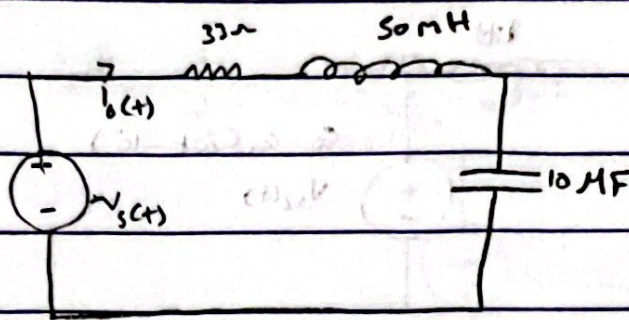 33Ω 50mH
i₀(t)
+
-
Vs(t)
10 μF